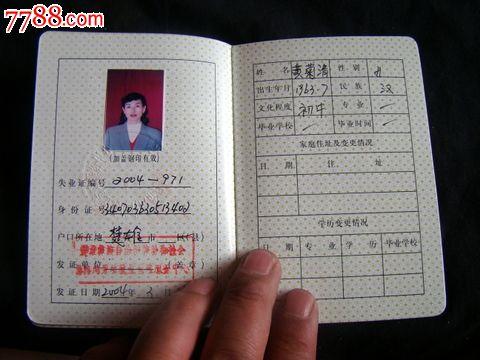 7788.com
中国收藏热线
(加盖钢印有效)
失业证编号 2004—971
身份证号
户口所在地 楚雄 市 县)
发证单位 (盖章)
发证日期 2004年 3 月
姓名 黄菊清 性别
出生年月 1963.7 民族 汉
文化程度 初中 专业 一
毕业学校 一 毕业时间 一
家庭住址及变更情况
日期 住址
学历变更情况
日期 专业 学历 毕业学校